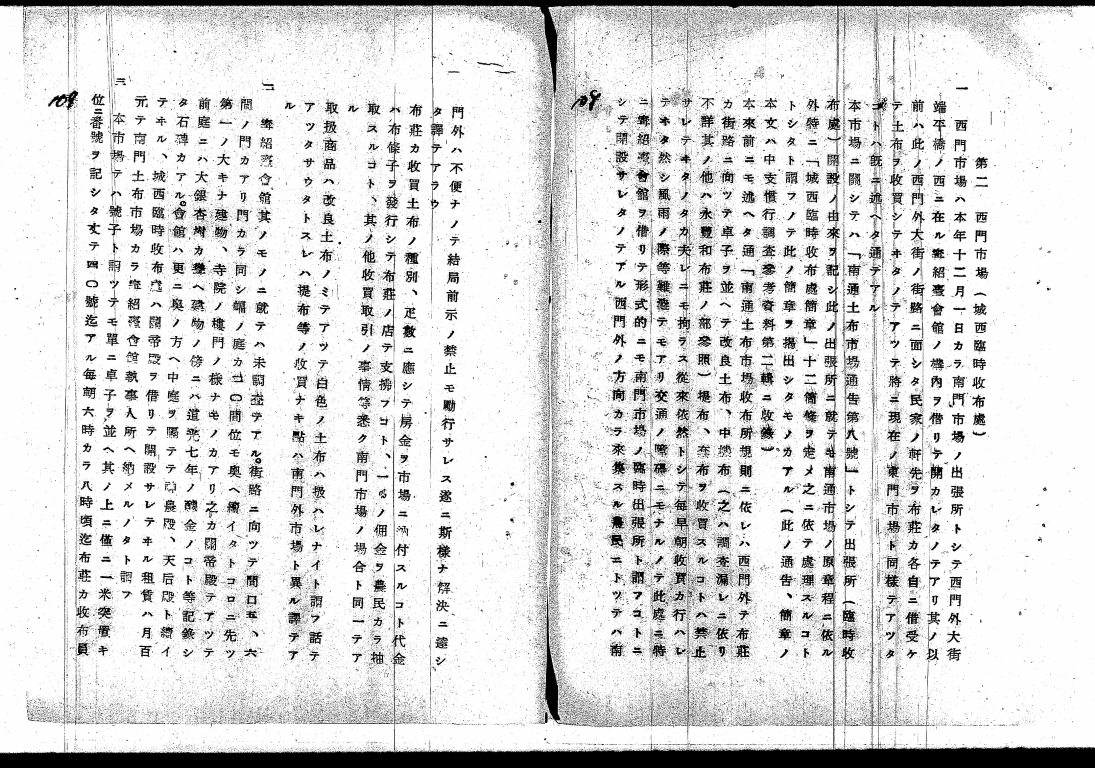 109
第二 西門市場(城西臨時收布處)
一 西門市場ハ本年十二月一日カラ南門市場ノ出張所トシテ西門外大街
端平橋ノ西ニ在ル寧紹臺會館ノ構內ヲ借リテ開カレタノテアリ其ノ以
前ハ此ノ西門外大街ノ街路ニ面シタ民家ノ軒先ヲ布莊カ各自ニ借受ケ
テ土布ヲ收買シテキタノテアツテ將ニ現在ノ東門市場ト同樣テアツタ
コトハ既ニ述ヘタ通テアル
本市場ニ關シテハ「南通土布市場通告第八號」トシテ出張所(臨時收
布處)開設ノ由來ヲ記シ此ノ出張所ニ就テモ南通市場ノ原章程ニ依ル
外特ニ「城西臨時收布處簡章」十二箇條ヲ定メ之ニ依テ處理スルコト
トシタト謂フノテ此ノ簡章ヲ揭出シタモノカアル(此ノ通告、簡章ノ
本文ハ中支慣行調查參考資料第二輯ニ收錄)
本來前ニモ述ヘタ通「南通土布市場收布所規則ニ依レハ西門外テ布莊
カ街路ニ向ツテ卓子ヲ並ヘテ改良土布、中機布(之ハ調查漏レニ依リ
不詳其ノ他ハ永豐和布莊ノ部參照)堤布、套布ヲ收買スルコトハ禁止
サレテキタノタカ夫レニモ拘ラス從來依然トシテ每早朝收買カ行ハレ
テキタ然シ風雨ノ際等難澁テモアリ交通ノ障礙ニモナルノテ此處ニ特
ニ寧紹臺會館ヲ借リテ形式的ニモ南門市場ノ臨時出張所ト謂フコトニ
シテ開設サレタノテアル西門外ノ方向カラ來集スル農民ニトツテハ南
109
門外ハ不便ナノテ結局前示ノ禁止モ勵行サレス遂ニ斯樣ナ解決ニ達シ
タ譯テアラウ
一
布莊カ收買土布ノ種別、疋數ニ應シテ房金ヲ市場ニ納付スルコト代金
ハ布條子ヲ發行シテ布莊ノ店テ支拂フコト、一%ノ佣金ヲ農民カラ抽
取スルコト、其ノ他收買取引ノ事情等悉ク南門市場ノ場合ト同一テア
ル
取扱商品ハ改良土布ノミテアツテ白色ノ土布ハ扱ハレナイト謂フ話テ
アツタサウタトスレハ堤布等ノ收買ナキ點ハ南門外市場ト異ル譯テア
ル
二 寧紹臺會館其ノモノニ就テハ未調查テアル。街路ニ向ツテ間口五、六
間ノ門カアリ門カラ同シ幅ノ庭カ二〇間位モ奧ヘ續イタトコロニ先ツ
第一ノ大キナ建物、寺院ノ樓門ノ樣ナモノカアリ之カ關帝殿テアツテ
前庭ニハ大銀杏樹カ聳ヘ建物ノ傍ニハ道光七年ノ醵金ノコト等記錄シ
タ石碑カアル。會館ハ更ニ奧ノ方ヘ中庭ヲ隔テテ神農殿、天后殿ト續イ
テキル、城西臨時收布處ハ關帝殿ヲ借リテ開設サレテキル租賃ハ月百
元テ南門土布市場カラ寧紹臺會館執事人所ヘ納メルノタト謂フ
三 本市場テハ號子ト謂ツテモ單ニ卓子ヲ並ヘ其ノ上ニ僅ニ一米突置キ
位ニ番號ヲ記シタ丈テ四〇號迄アル每朝六時カラ八時頃迄布莊カ收布員